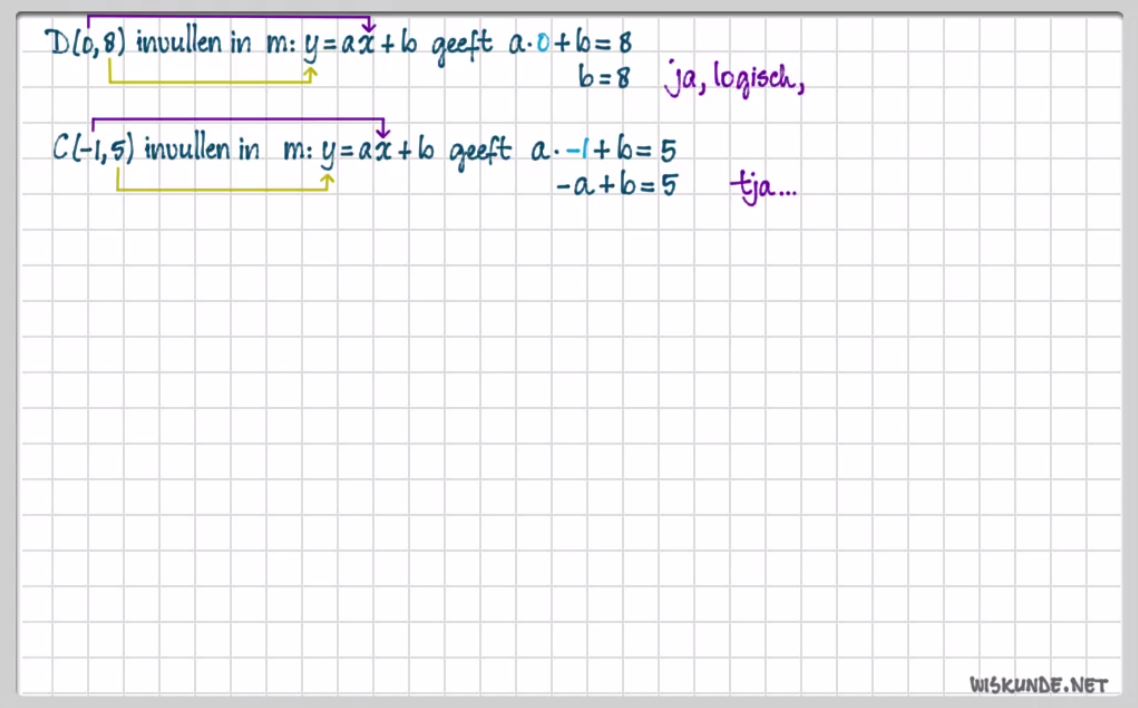 D(0,8) invullen in m: y=ax+b geeft a·0+b=8
b=8 ja, logisch,
C(-1,5) invullen in m: y=ax+b geeft a·-1+b=5
-a+b=5 tja...
WISKUNDE.NET